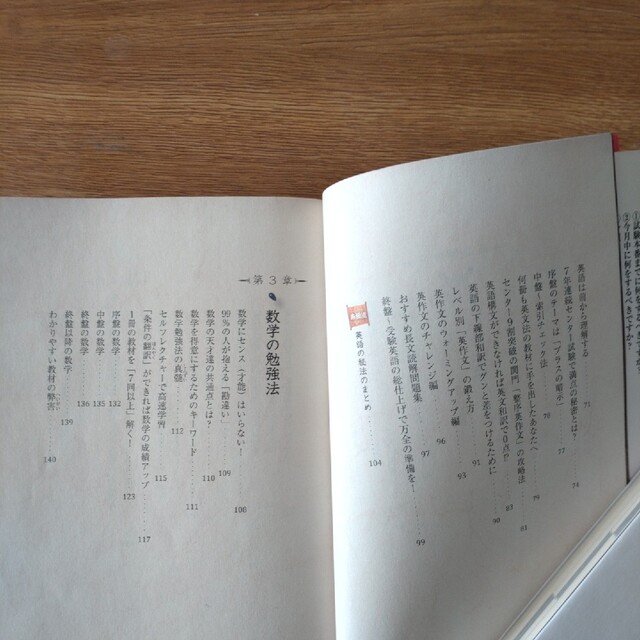 英語は前から理解する 71
7年連続センター試験で満点の秘密とは? 74
序盤のキーワードは「プラスの暗示」 77
中盤〜索引テクニック法 78
何冊も英文法の教材に手を出したあなたへ 79
センター9割突破の関門「整序英作文」の攻略法 81
英語構文ができなければ英文和訳で0点!? 87
英語の下線部和訳でグンと差をつけるために 90
レベル別「英作文」の鍛え方 92
英作文のウォーミングアップ編 93
英作文のチャレンジ編 96
おすすめ長文読解問題集 97
終盤〜受験英語の総仕上げで万全の準備を! 99
英語の勉強法のまとめ 104
第3章
数学の勉強法
数学にセンス(才能)はいらない! 108
99%の人が抱える「勘違い」 109
数学の天才達の共通点とは? 110
数学を得意にするためのキーワード 111
数学勉強法の真髄 112
セルフレクチャーで高速学習 115
「条件の翻訳」ができれば数学の成績アップ 117
1冊の教材を「7回以上」解く! 123
序盤の数学 132
中盤の数学 135
終盤の数学 136
終盤以降の数学 139
わかりやすい教材の弊害 140